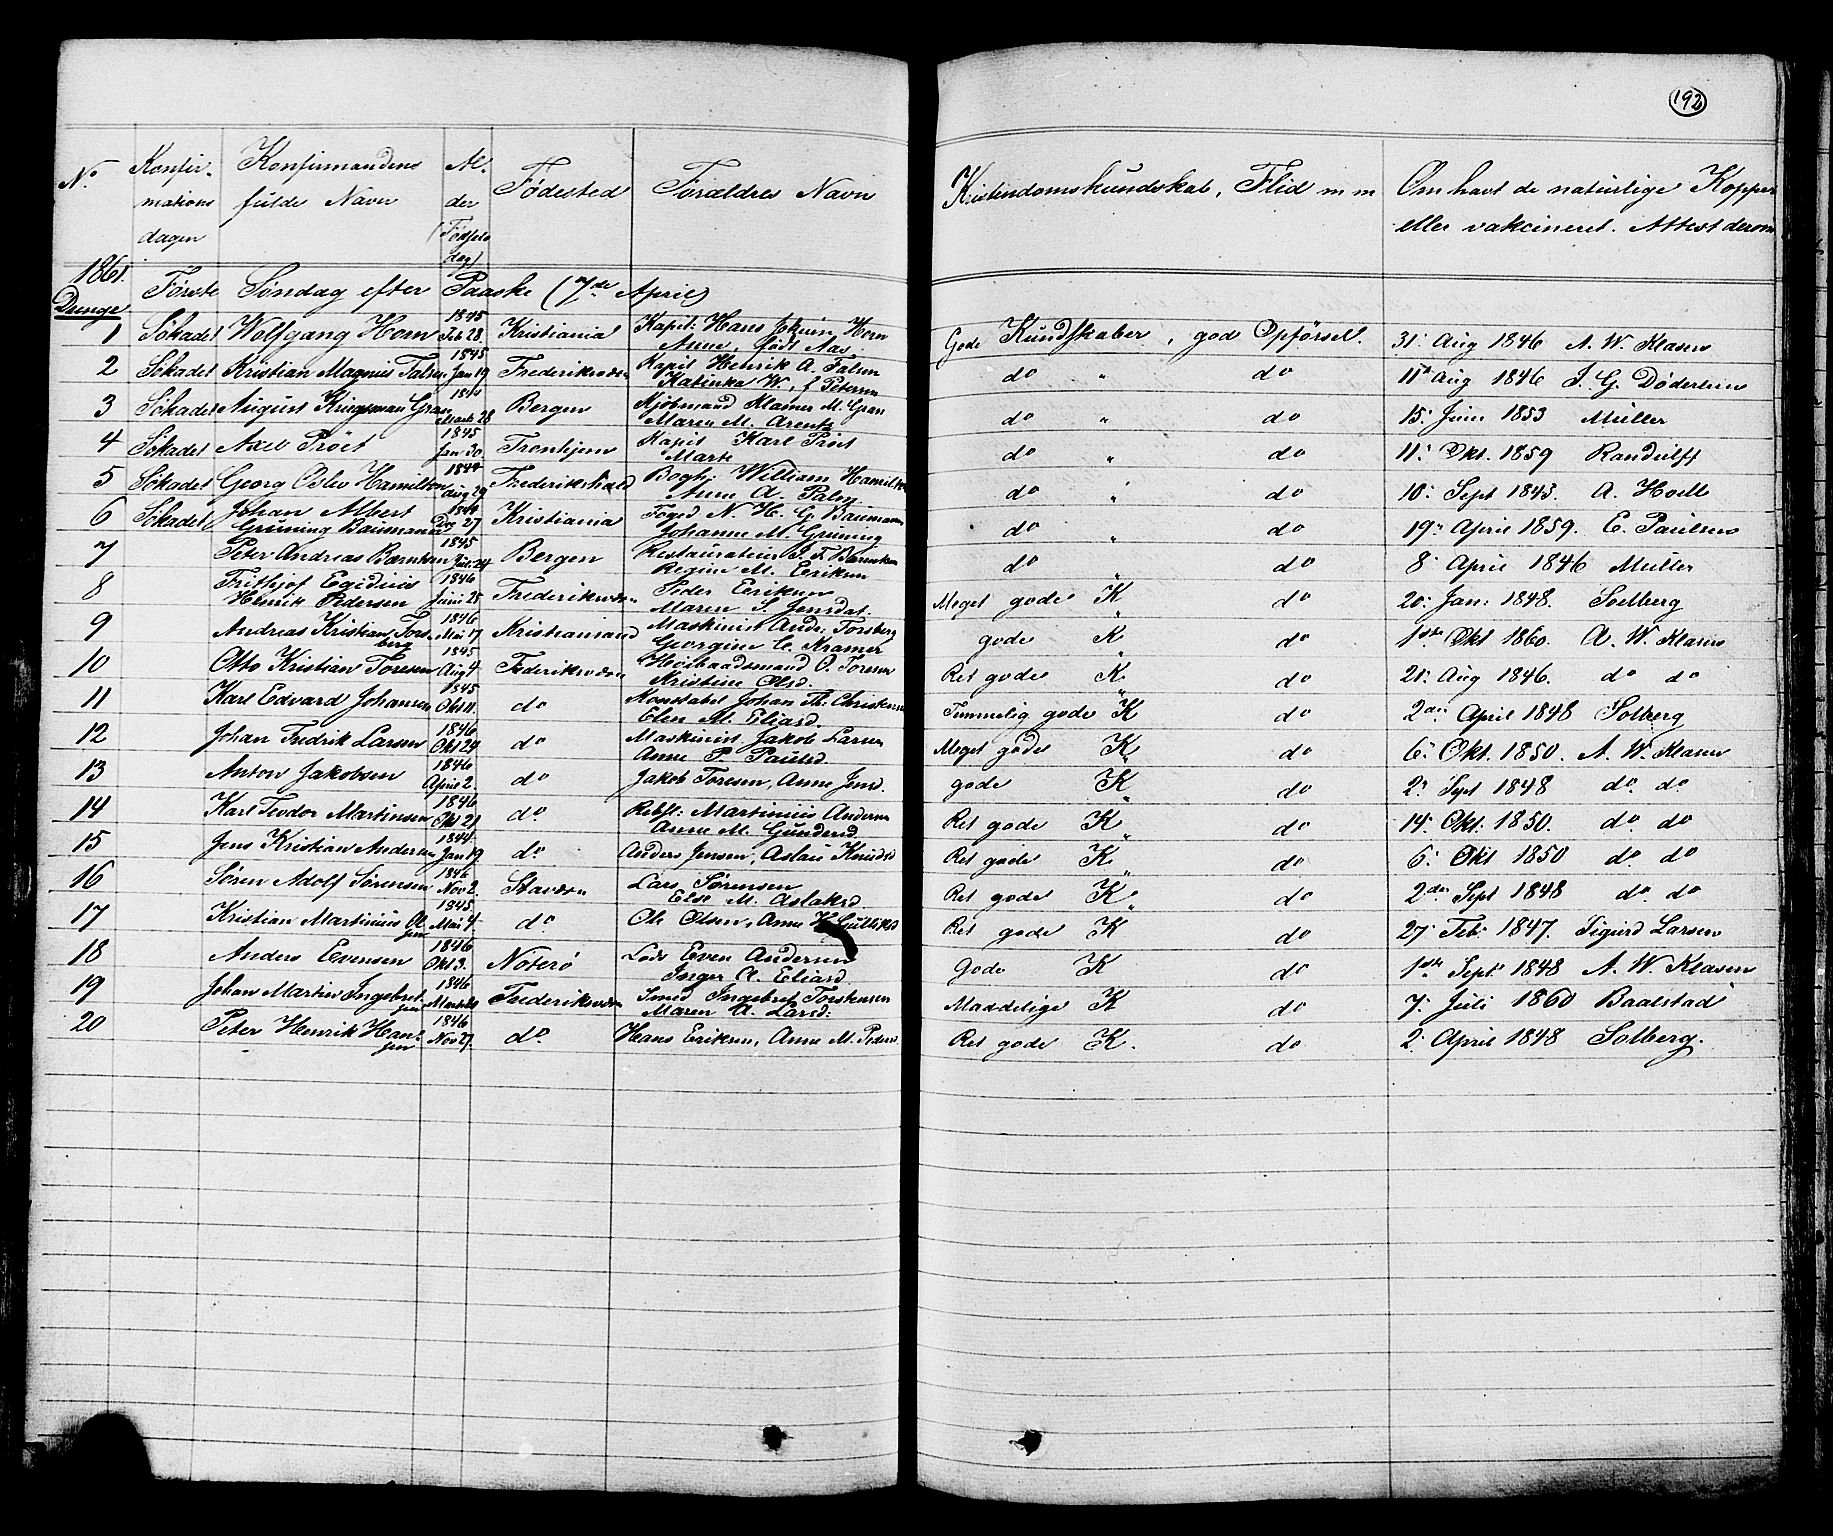 192
N.º Konfirmations dagen Konfirmandens fulde Navn Alder (Fødselsdag) Fødested Forældres Navn Kristendomskundskab, Flid m m Om havt de naturlige Kopper eller vakcineret. Attest derom
1861. Første Søndag efter Paaske (7de April)
Drenge
1 Sökadet Wolfgang Horn 1845 Feb 28 Kristiania Kapit: Hans Horn Anne, født Aas Gode Kundskaber, god Opförsel. 31: Aug 1846 A. W. Klasen
2 Sökadet Kristian Magnus Falsen 1845 Jan 19 Frederiksværn Kapit Henrik A. Falsen Katinka W., f Petersen do " do 11te Aug 1846 J. G. Döderlein
3 Sökadet August Gran Marts 28 Bergen Kjöbmand Klamer M. Gran Maren M. Arentz do " do 15: Juni 1853 Müller
4 Sökadet Axel Pröet 1845 Jan 30. Tronhjem Kapit Karl Pröet Marte do " do 11: Okt. 1859 Randulff
5 Sökadet Georg Oslev Hamilton 1844 Aug 29 Frederikshald Bogh: William Hamilton Anne A. Palm do " do 10: Sept 1845. A. Hoell
6 Sökadet Johan Albert Grüning Baumann 1844 27 Kristiania Foged N. H. G. Baumann Johanne M. Grüning do " do 19: April 1859. E. Paulsen
7 Peter Andreas 1845 24 Bergen Restaurateur J. F. Regine M. Eriksen do " do 8: April 1846 Müller
8 Frithjof Egidius Henrik Pedersen 1846 Juni 25 Frederiksværn Peder Eriksen Maren S. Jensdat. Meget gode K " do 20: Jan: 1848. Solberg
9 Andreas Kristian Forsberg 1846 Mai 17 Kristiansand Maskinist Andr: Forsberg Georgine C. Kramer gode K " do 1ste Okt 1860. A. W. Klasen
10 Otto Kristian Toresen 1845 Aug 4. Federiksværn O. Toresen Kristine Olsd. Ret gode K " do 21: Aug 1846. do do
11 Karl Edvard Johansen 1845 Okt 11. do Konstabel Johan Th: Christensen Elen M. Eliasd. Temmelig gode K " do 2den April 1848 Solberg
12 Johan Fredrik Larsen 1846 Okt 24 do Maskinist Jakob Larsen Anne P. Paulsd. Meget gode K " do 6: Okt. 1850. A. W. Klasen
13 Anton Jakobsen 1846 April 2. do Jakob Toresen, Anne Jensd. gode K " do 2: Sept 1848 do. do
14 Karl Teodor Martinsen 1846 Okt 21 do Rebsl: Martinius Andersen Anne M. Gundersd. Ret gode K " do 14: Okt: 1850. do. do
15 Jens Kristian Andersen 1844 Jan 19 do. Anders Jensen, Aslau Knudsd Ret gode K " do 6: Okt 1850 do. do
16 Sören Adolf Sørensen 1846 Nov 2. Staværn Lars Sørensen Else M. Aslaksd. Ret gode K " do 2den Sept 1848 do. do
17 Kristian Martinius Olsen 1845. Mai 4. do. Ole Olsen, Anne K. Gulliksd Ret gode K do 27: Feb: 1847. Sigurd Larsen
18 Anders Evensen 1846 Okt 3. Noterö Lods Even Andersen Inger A. Eliasd. Gode K do 1ste Sept: 1848 A. W. Klasen
19 Johan Martin Ingebretsen 1846 Frederiksværn Smed Ingebret Torstensen Maren A. Larsd: Maadelige K do 7: Juli 1860 Baalstad
20 Peter Henrik Hansen 1846 Nov 27. do. Hans Eriksen, Anne M. Pedersd. Ret gode K. do 2: April 1848 Solberg.